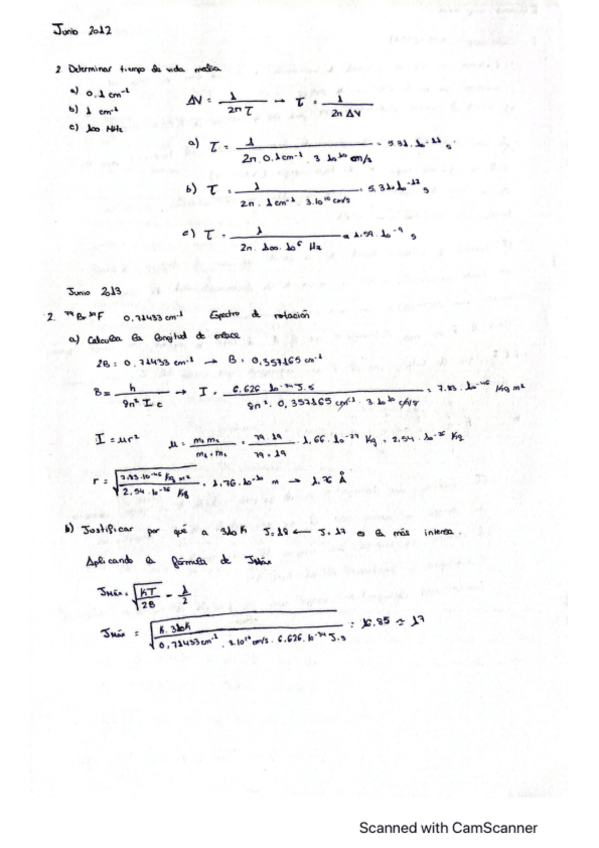 Junio 2012
2 Determinar tiempo de vida media
a) 0,1 cm⁻¹
b) 1 cm⁻¹
c) 100 MHz
ΔV = 1 / 2π τ → τ = 1 / 2π ΔV
a) τ = 1 / 2π · 0,1cm⁻¹ · 3 · 10¹⁰ cm/s = 5,31 · 10⁻¹¹ s
b) τ = 1 / 2π · 1 cm⁻¹ · 3 · 10¹⁰ cm/s = 5,3 · 10⁻¹² s
c) τ = 1 / 2π · 100 · 10⁶ Hz = 1,59 · 10⁻⁹ s
Junio 2013
2. ⁷⁹Br¹⁹F 0,71433 cm⁻¹ Espectro de rotación
a) Calcula la longitud de enlace
2B = 0,71433 cm⁻¹ → B = 0,357165 cm⁻¹
B = h / 8π² I c → I = 6.626 · 10⁻³⁴ J.s / 8π² · 0,357165 cm⁻¹ · 3 · 10¹⁰ cm/s = 7.83 · 10⁻⁴⁶ Kg m²
I = μr² μ = m₁ m₂ / m₁ + m₂ = 79 · 19 / 79 + 19 · 1,66 · 10⁻²⁷ Kg = 2,54 · 10⁻²⁶ Kg
r = √ 7.83 · 10⁻⁴⁶ Kg m² / 2,54 · 10⁻²⁶ Kg = 1,76 · 10⁻¹⁰ m → 1,76 Å
b) Justificar por qué a 310K J=18 ← J=17 es la más intensa.
Aplicando la fórmula de Jmáx
Jmáx = √ KT / 2B - 1 / 2
Jmáx = √ K · 310K / 0,71433cm⁻¹ · 3·10¹⁰ cm/s · 6.626 · 10⁻³⁴ J.s = 16.85 ≈ 17
Scanned with CamScanner